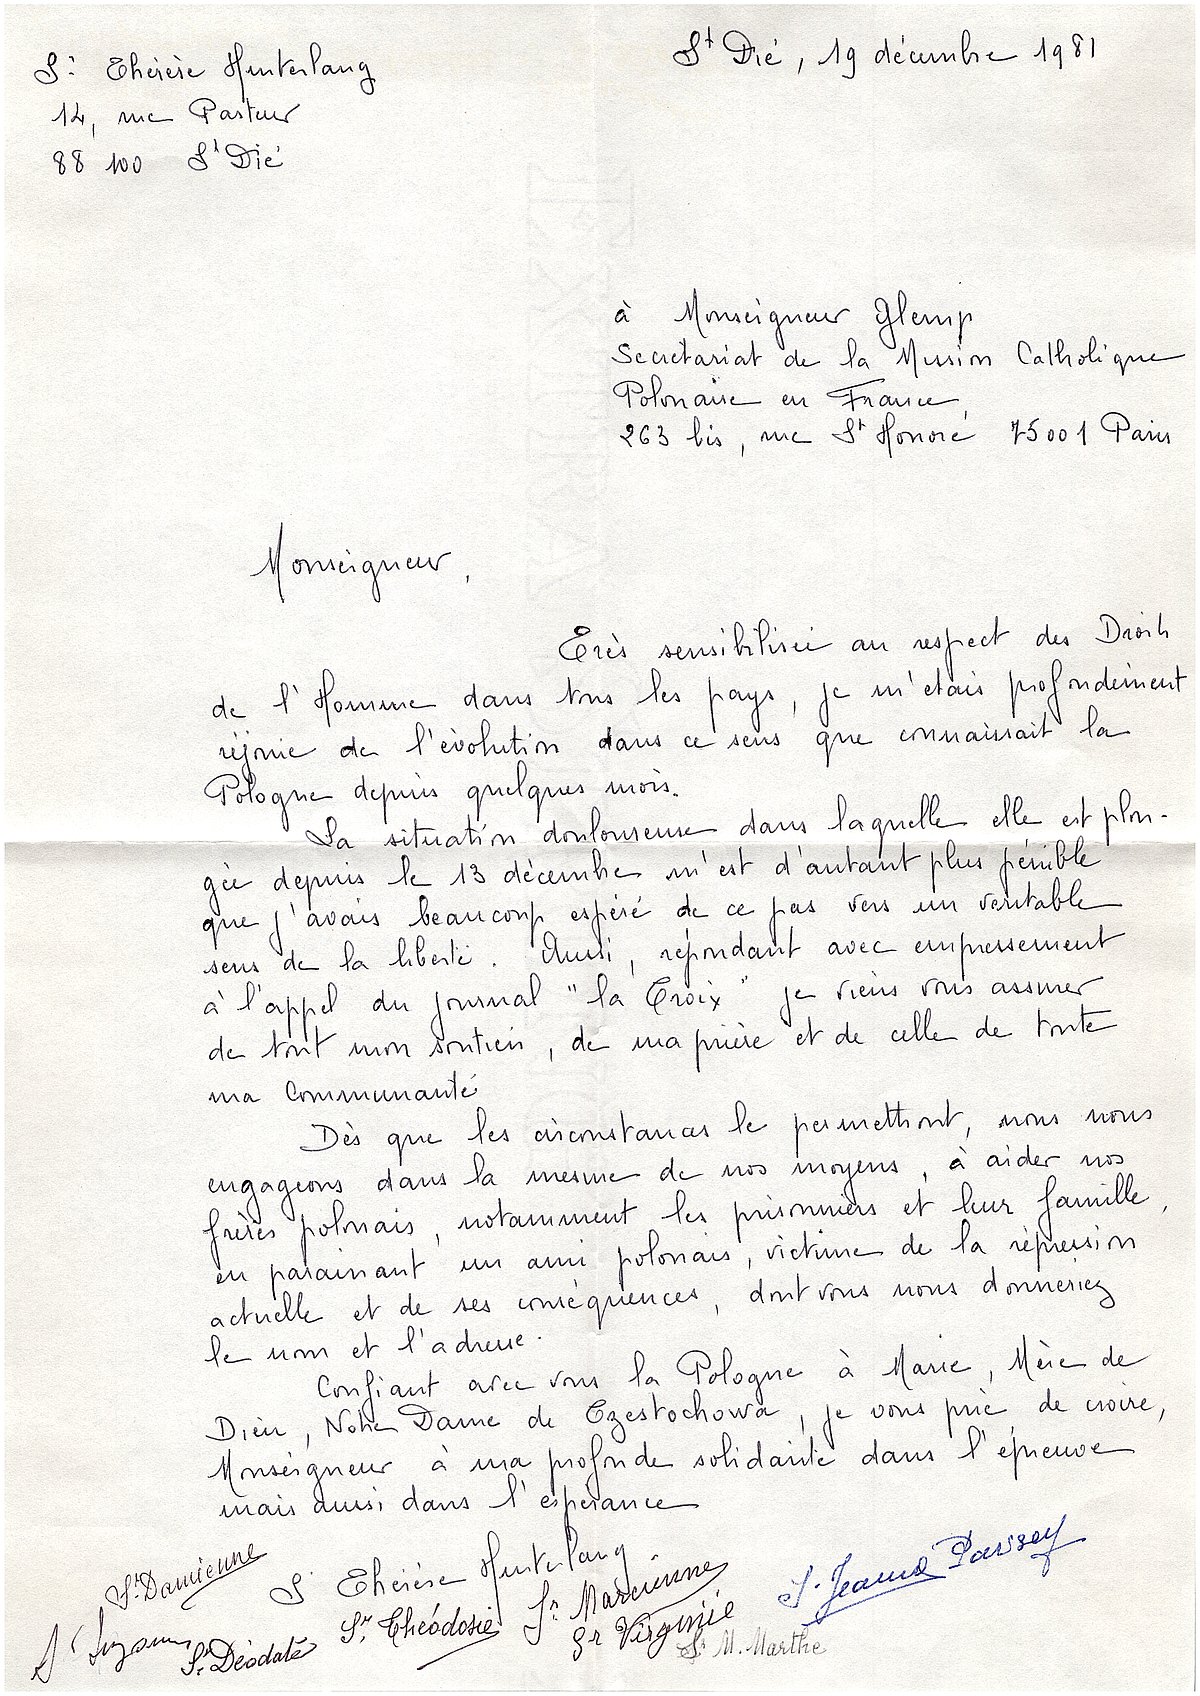 Sr Thérèse Hunterlang
St Dié, 19 décembre 1981
14, rue Pasteur
88 100 St Dié
à Monseigneur Glemp
Secrétariat de la Mission Catholique
Polonaise en France,
263 bis, rue St Honoré 75001 Paris
Monseigneur,
Très sensibilisée au respect des Droits
de l'Homme dans tous les pays, je m'étais profondément
réjouie de l'évolution dans ce sens que connaissait la
Pologne depuis quelques mois.
La situation douloureuse dans laquelle elle est plon-
gée depuis le 13 décembre m'est d'autant plus pénible
que j'avais beaucoup espéré de ce pas vers un véritable
sens de la liberté. Aussi, répondant avec empressement
à l'appel du journal "la Croix" je viens vous assurer
de tout mon soutien, de ma prière et de celle de toute
ma communauté
Dès que les circonstances le permettront, nous nous
engageons dans la mesure de nos moyens, à aider nos
frères polonais, notamment les prisonniers et leur famille,
en parainant un ami polonais, victime de la répression
actuelle et de ses conséquences, dont vous nous donneriez
le nom et l'adresse.
Confiant avec vous la Pologne à Marie, Mère de
Dieu, Notre Dame de Czestochowa, je vous prie de croire,
Monseigneur à ma profonde solidarité dans l'épreuve
mais aussi dans l'espérance
Sr Damienne
Sr Thérèse Hunterlang
Sr Jeanne Parisey
Sr Marcienne
Sr Théodosie
Sr Virginie
Sr Suzanne
Sr Déodate
Sr M. Marthe